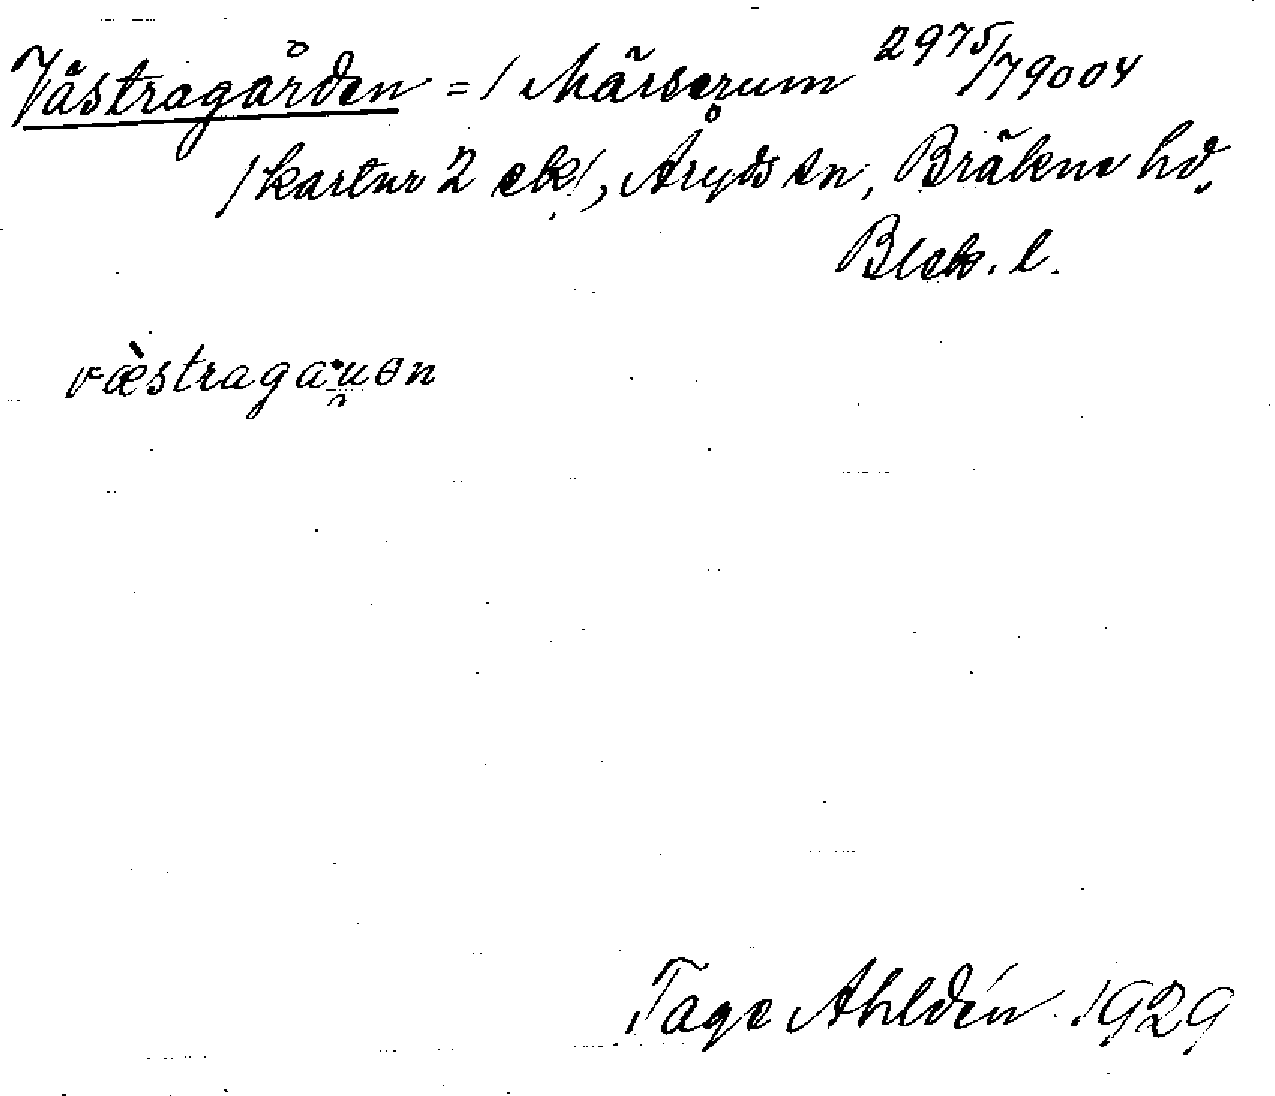 Västragården = / Märserum 2975/79004
/kartnr 2 ek/, Åryds sn, Bräkne hd,
Blek. l.
væ̀straga·u̯ən
Tage Ahldén 1929